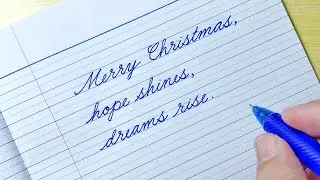 Merry Christmas,
hope shines,
dreams rise.